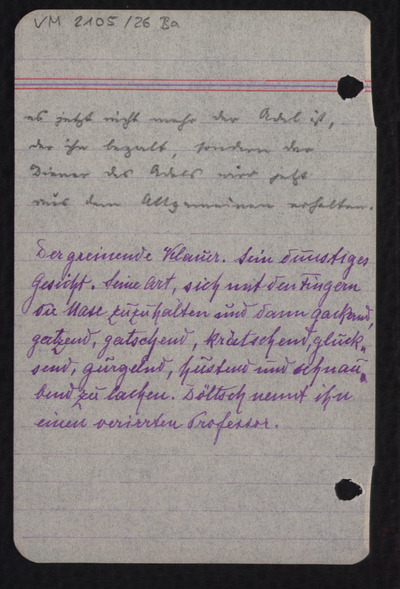 VM 2105/26 Ba
es jetzt nicht mehr der Adel ist,
der ihn bezalt, sondern der
Diener des Adels wird jetzt
aus dem Allgemeinen erhalten.
Der greinende Klauer. Sein dunstiges
Gesicht. Seine Art, sich mit den Fingern
die Nase zuzuhalten und dann gackernd,
gatzend, gatschend, krätschend, gluck-
send, gurgelnd, hustend und schnau-
bend zu lachen. Döltsch nennt ihn
einen verierrten Professor.